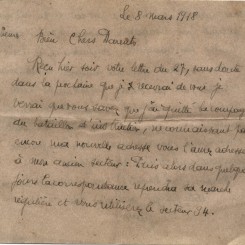 Le 8 mars 1918
Bien Chers Parents
Reçu hier soir votre lettre du 27, sans doute
dans la prochaine que je recevrai de vous je
verrai que vous savez que j'ai quitté la compagnie
du bataillon d'
encore ma nouvelle adresse vous l'avez adressée
à mon ancien secteur. Puis alors dans quelques
jours la correspondance reprendra sa marche
régulière et vous mettrez le secteur 34.